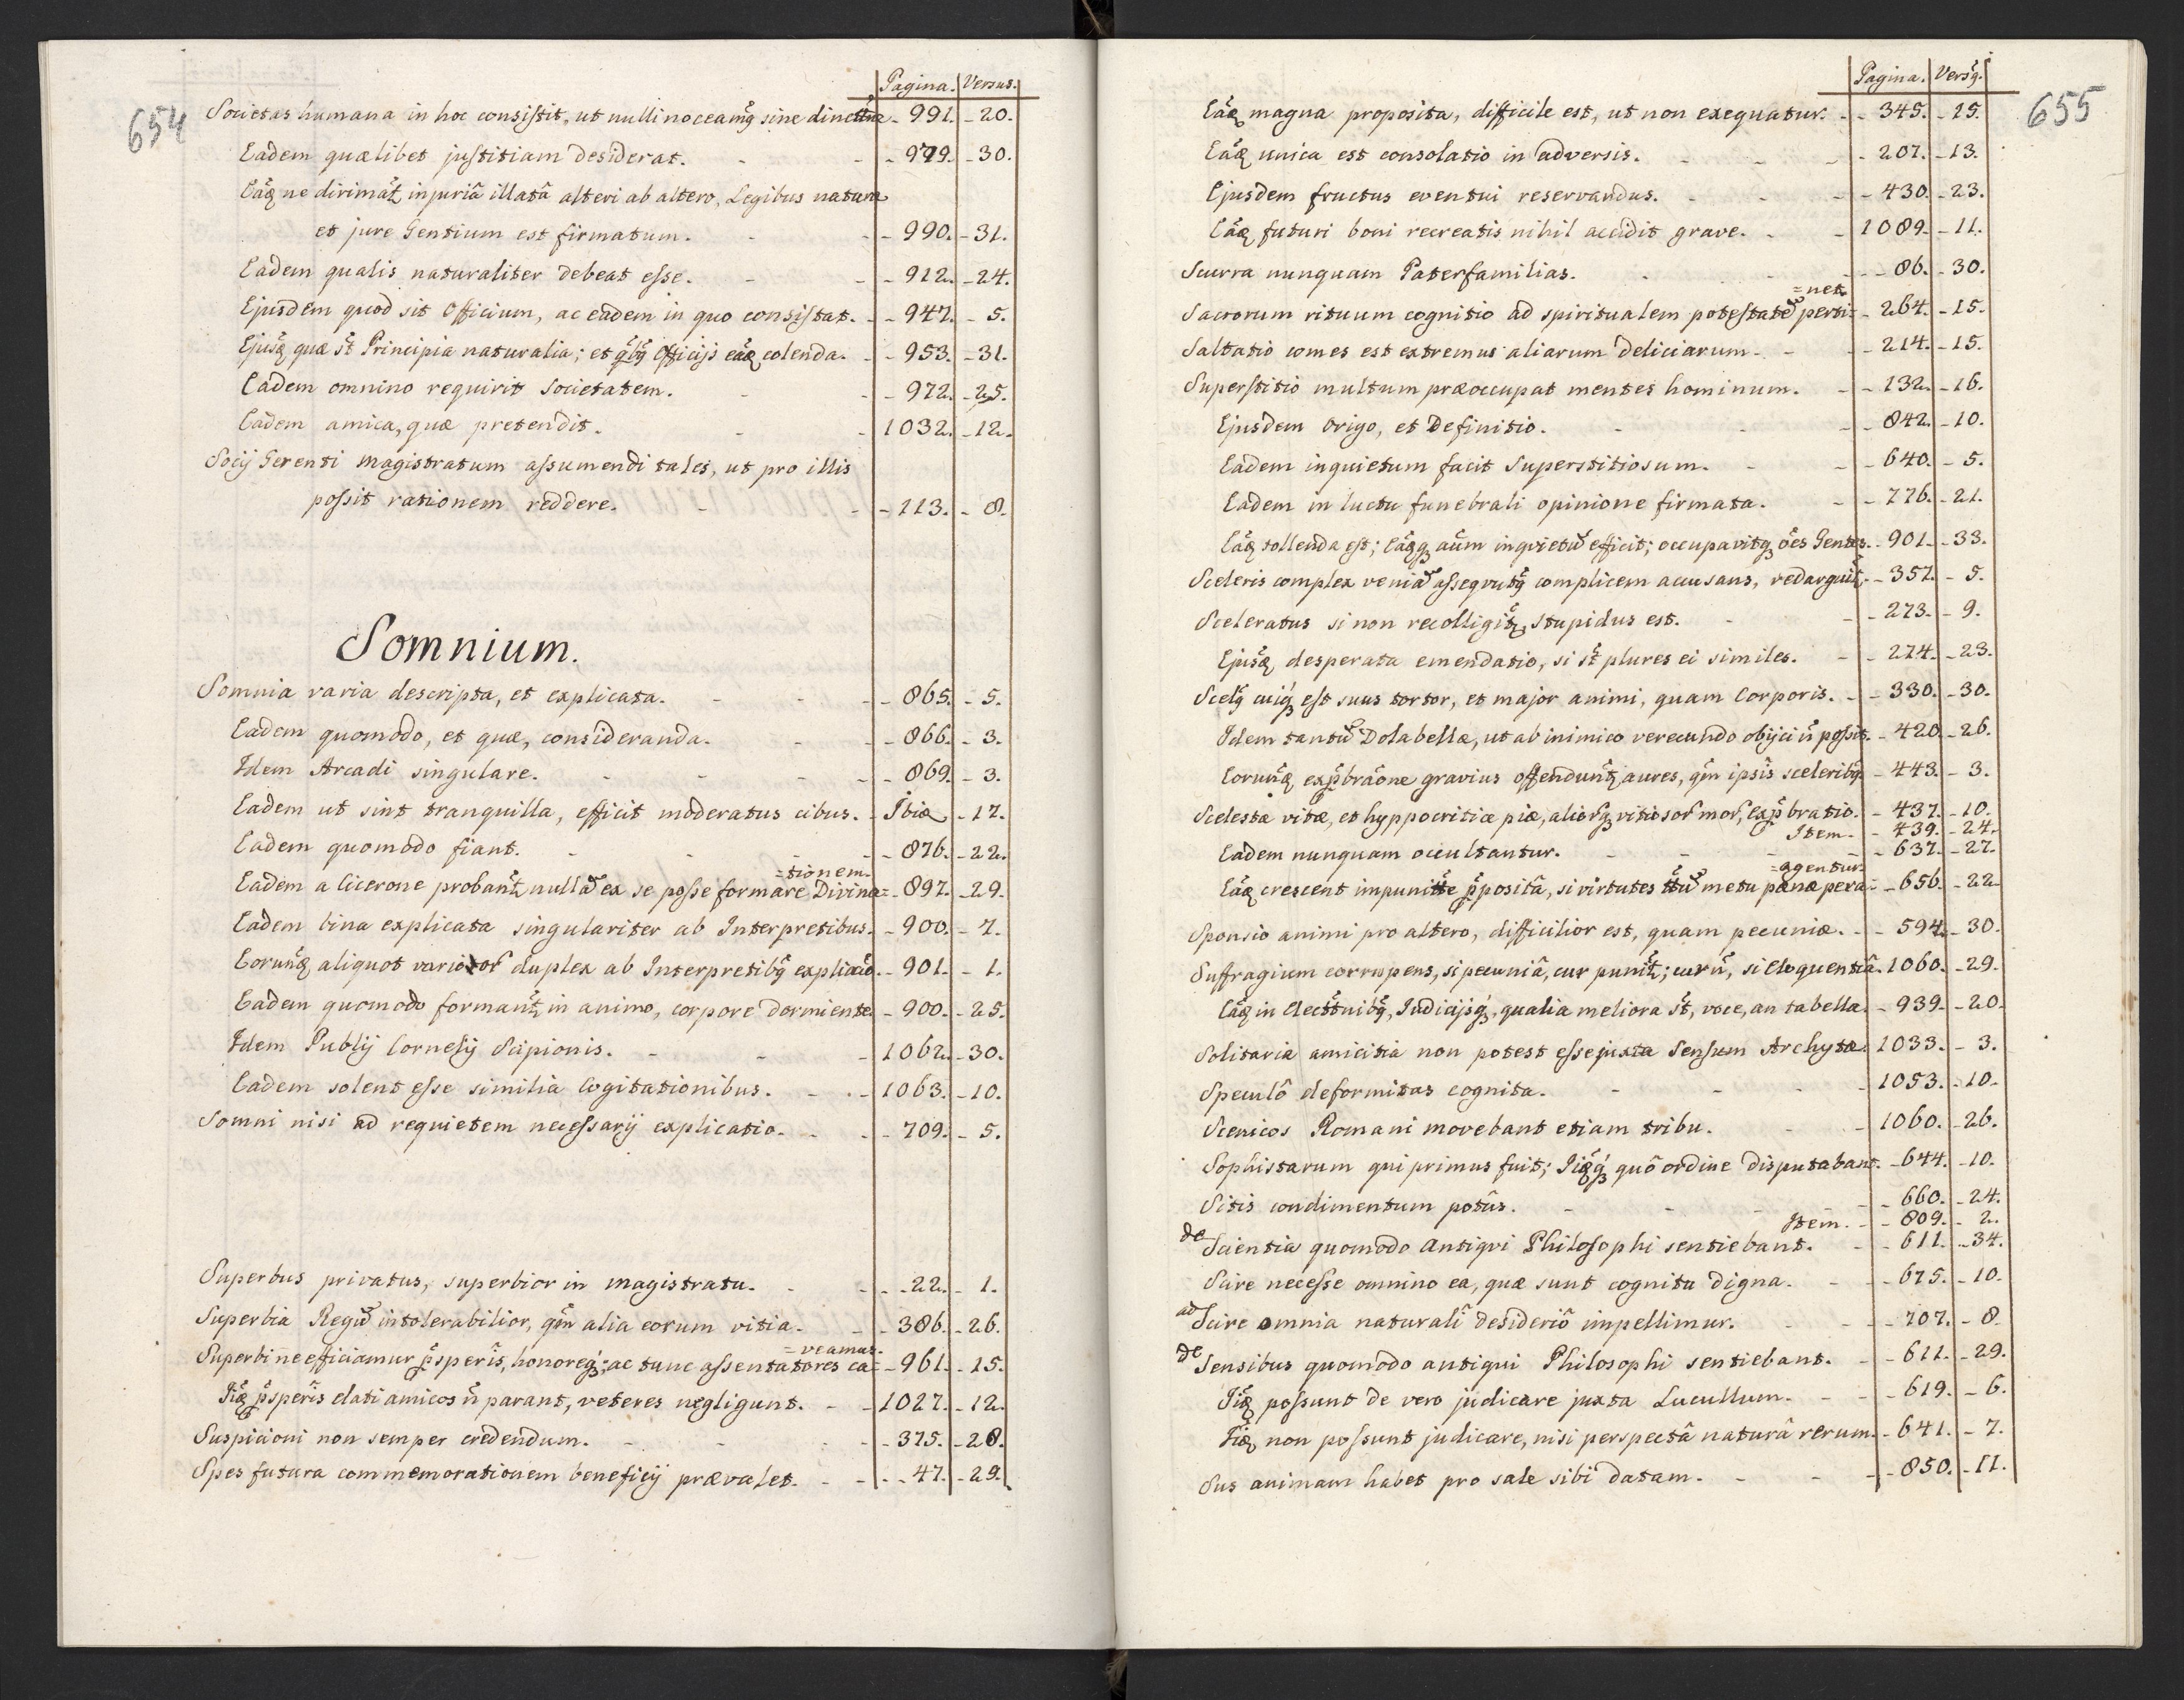 654
Pagina. Versus.
Societas humana in hoc consistit, ut nulli noceamq̃ sine - 991. - 20.
Eadem quælibet justitiam desiderat. - 979. - 30.
Eãq ne dirimat̃ injuriâ illatâ alteri ab altero, Legibus naturæ
et jure Gentium est firmatum. - 990. - 31.
Eadem qualis naturaliter debeat esse. - 912. - 24.
Ejusdem quod sit Officium, ac eadem in quo consistat. - 947. - 5.
Ejusq̃ quæ st̃ Principia naturalia; et qb̃q̃ Officijs eãq colenda. - 953. - 31.
Eadem omnino requirit societatem. - 972. - 25.
Eadem amica, quæ pretendit. - 1032. - 12.
Socij Gerenti magistratum assumendi tales, ut pro illis
possit rationem reddere. - 113. - 8.
Somnium.
Somnia varia descripta, et explicata. - 865. - 5.
Eadem quomodo, et quæ, consideranda. - 866. - 3.
Idem Arcadi singulare. - 869. - 3.
Eadem ut sint tranquilla, efficit moderatus cibus. - Ibiđ - 17.
Eadem quomodo fiant. - 876. - 22.
=tionem.
Eadem a Cicerone probant̃ nullã ex se posse formare Divina= - 897. - 29.
Eadem bina explicata singulariter ab Interpretibus. - 900. - 7.
Eorunq̃ aliquot varioꝝ duplex ab Interpretibq̃ explicaõ. - 901. - 1.
Eadem quomodo formant̃ in animo, corpore dormiente. - 900. - 25.
Idem Publij Cornelij Scipionis. - 1062. - 30.
Eadem solent esse similia Cogitationibus. - 1063. - 10.
Somni nisi ad requietem necessarij explicatio. - 709. - 5.
Superbus privatus, superbior in magistratu. - 22. - 1.
Superbia Regũ intolerabilior, qm̃ alia eorum vitia. - 386. - 26.
=veamus.
Superbi ne efficiamur p̃speris, honoreq́; ac tunc assentatores ca= - 961. - 15.
Iiq̃ p̃speris elati amicos ñ parant, veteres negligunt. - 1027. - 12.
Suspicioni non semper credendum. - 375. - 28.
Spes futura commemorationem beneficij prævalet. - 47. - 29.
655
Pagina. Versq̃.
Eãq magna proposita, difficile est, ut non exequatur. - 345. - 15.
Eãq unica est consolatio in adversis. - 207. - 13.
Ejusdem fructus eventui reservandus. - 430. - 23.
Eãq futuri boni recreatis nihil accidit grave. - 1089. - 11.
Scurra nunquam Paterfamilias. - 86. - 30.
=net.
Sacrorum rituum cognitio ad spiritualem potestatẽ perti= - 264. - 15.
Saltatio comes est extremus aliarum deliciarum. - 214. - 15.
Superstitio multum præoccupat mentes hominum. - 132. - 16.
Ejusdem Origo, et Definitio. - 842. - 10.
Eadem inquietum facit Superstitiosum. - 640. - 5.
Eadem in luctu funebrali opinione firmata. - 776. - 21.
Eãq tollenda est; Eãqq aũm inquietũ efficit; occupavitq ões Gentes. - 901. - 33.
Sceleris complex veniã assequutq̃ complicem accusans, redarguit̃. - 357. - 5.
Sceleratus si non recolligit̃, stupidus est. - 273. - 9.
Ejusq̃ desperata emendatio, si st̃ plures ei similes. - 274. - 23.
Scelq̃ cuiq́ est suus tortor, et major animi, quam Corporis. - 330. - 30.
Idem tantũ Dolabellæ, ut ab inimico verecundo objici ñ possit. - 420. - 26.
Eorunq̃ exp̃braõne gravius offendunt̃ aures, qm̃ ipsis sceleribq̃ - 443. - 3.
Scelestæ vitæ, et hyppocriticæ piæ, alioꝝq vitiosoꝝ moꝝ, Exp̃bratio. - 437. - 10.
Item. - 439. - 24.
Eadem nunquam occultantur. - 637. - 27.
=agentur.
Eãq crescent p̃positâ, si virtutes metu pœnæ pera= - 656. - 22.
Sponsio animi pro altero, difficilior est, quam pecuniæ. - 594. - 30.
Suffragium corrupens, si pecuniâ, cur punit̃; cur ñ, si Eloquentiâ. 1060. - 29.
Eãq in Elect̃nibq̃, Judicijsq́, qualia meliora st̃, voce, an tabella. - 939. - 20.
Solitaria amicitia non potest esse juxta Sensum Archytæ. 1033. - 3.
Speculô deformitas cognita. - 1053. - 10.
Scenicos Romani movebant etiam tribu. - 1060. - 26.
Sophistarum qui primus fuit; Iiq̃q́ quô ordine disputabant. - 644. - 10.
Sitis condimentum potûs. - 660. - 24.
Item. - 809. - 2.
de Scientia quomodo Antiqui Philosophi sentiebant. - 611. - 34.
Scire necesse omnino ea, quæ sunt cognitu digna. - 675. - 10.
ad Scire omnia naturali desideriô impellimur. - 707. - 8.
de Sensibus quomodo antiqui Philosophi sentiebant. - 611. - 29.
Iiq̃ possunt de vero judicare juxta Lucullum. - 619. - 6.
Iiq̃ non possunt judicare, nisi perspectâ naturâ rerum. - 641. - 7.
Sus animam habet pro sale sibi datam. - 850. - 11.